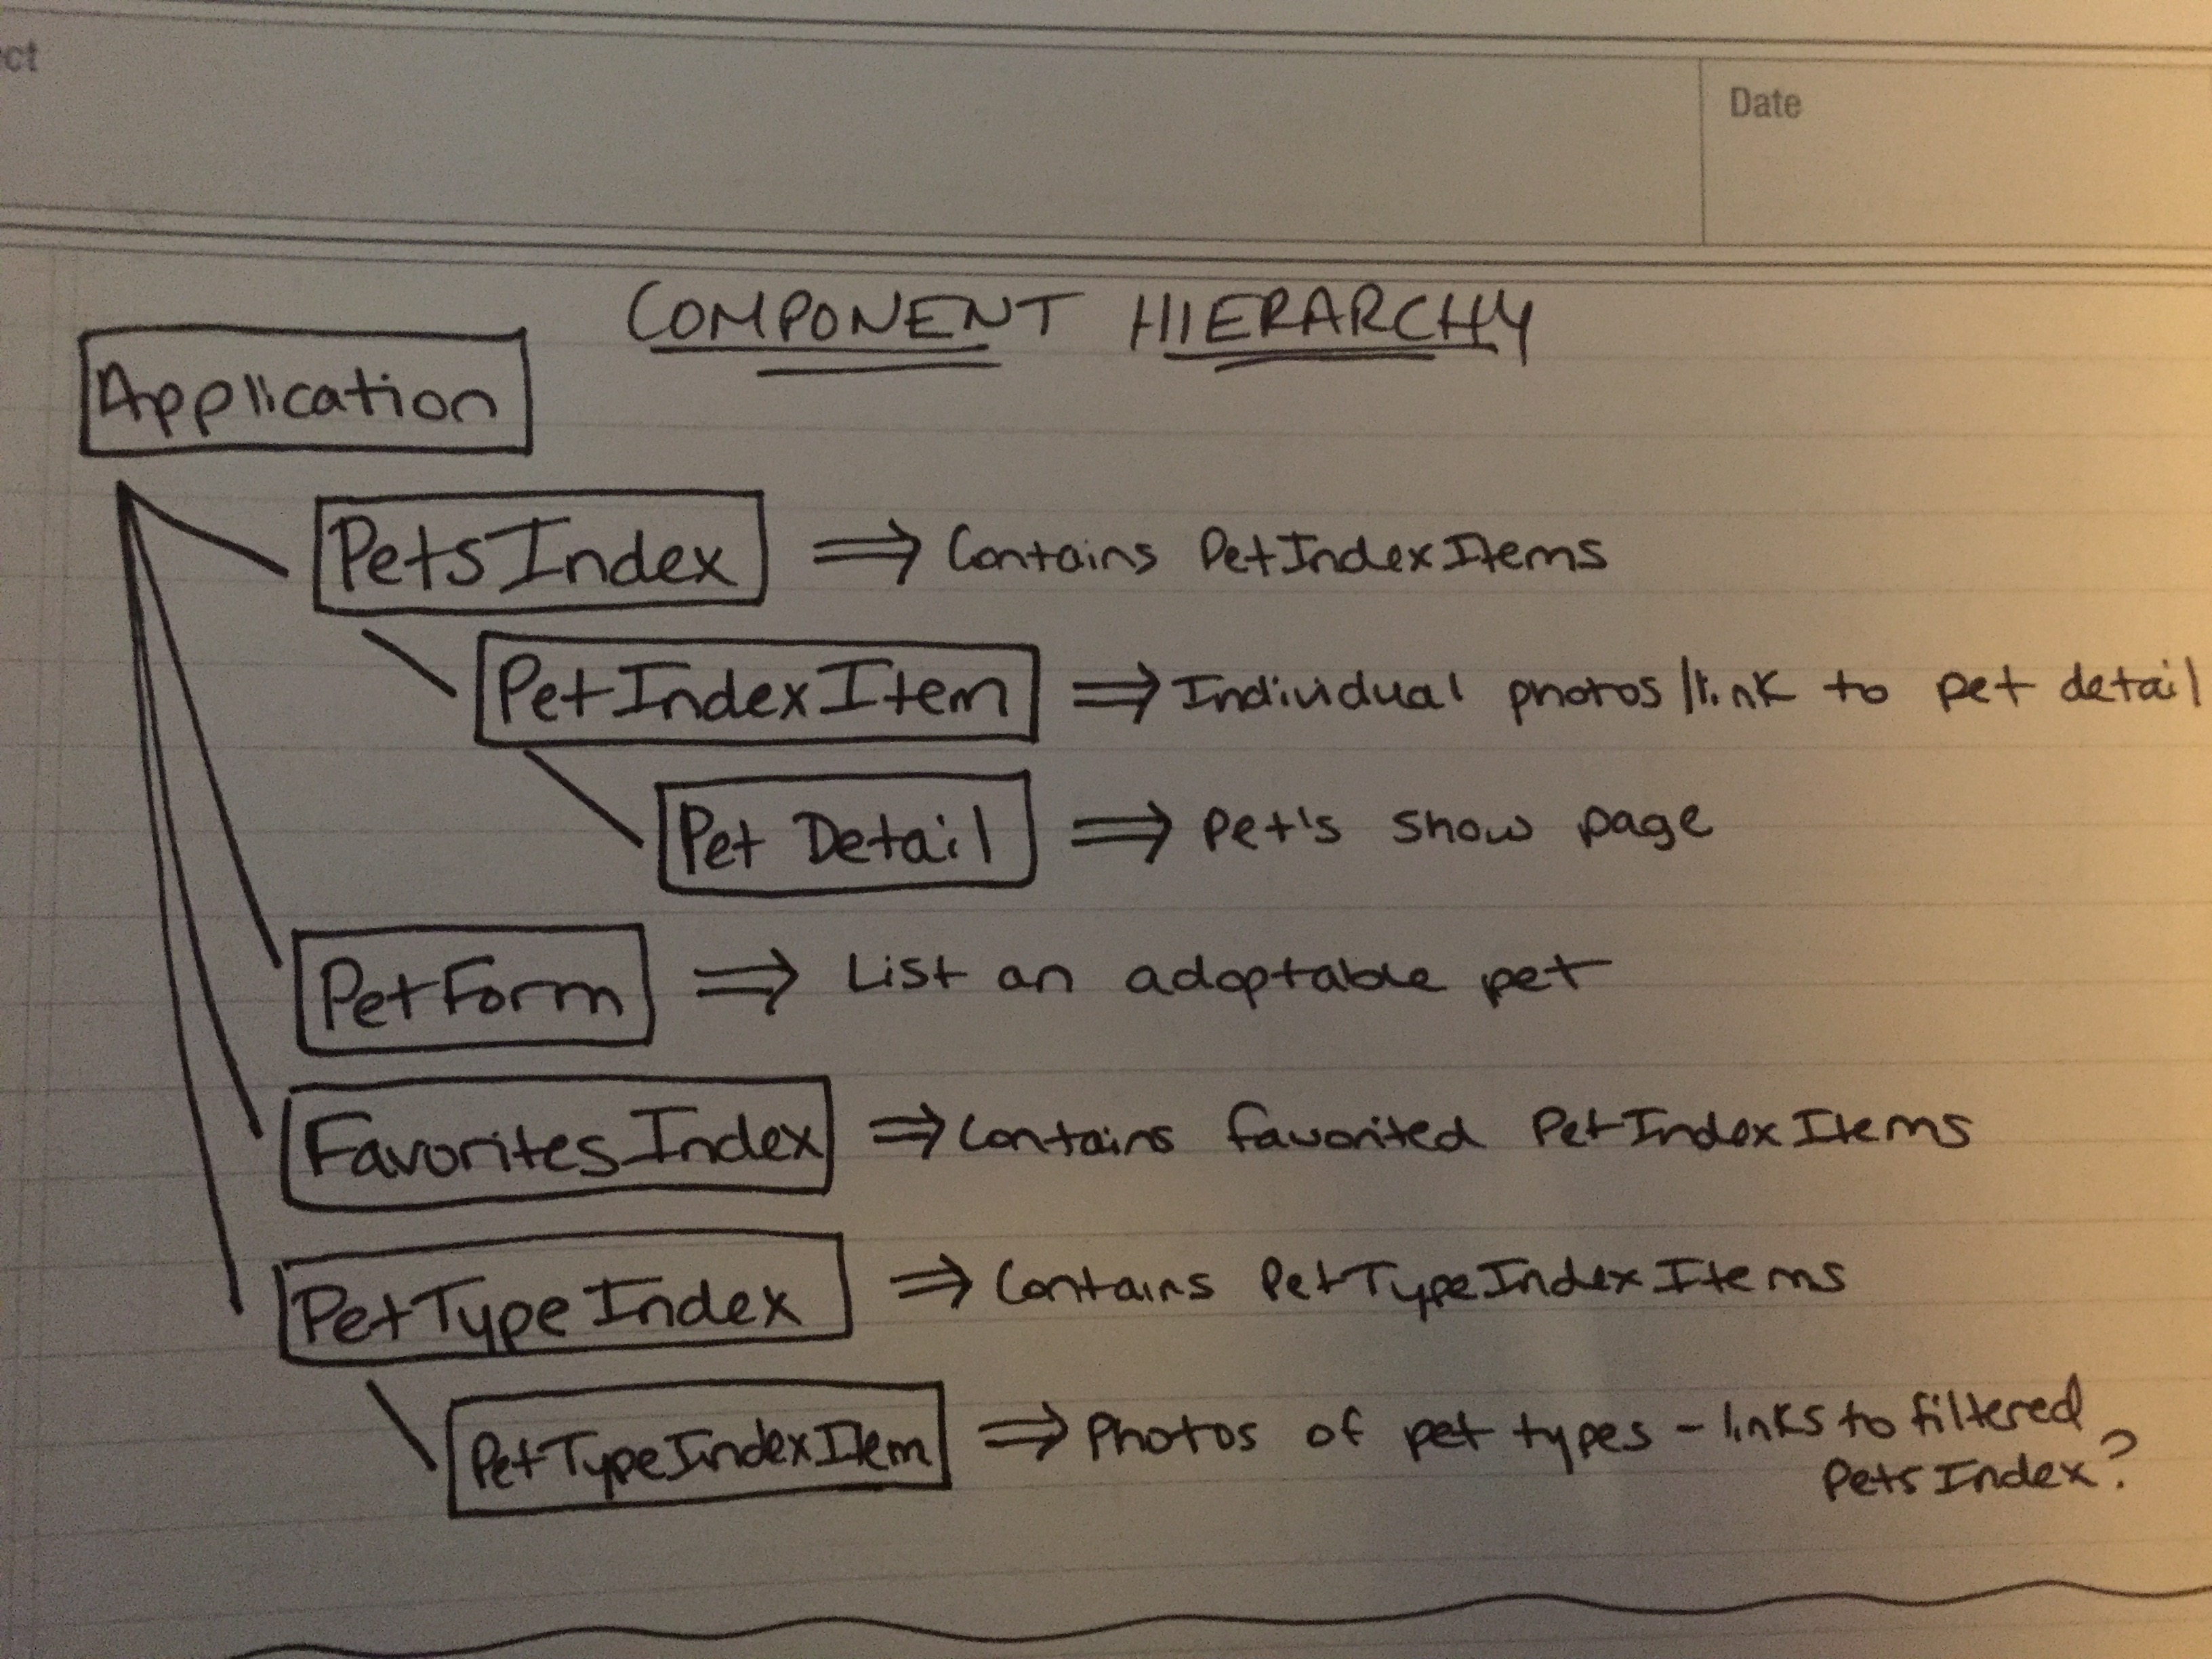 ct
Date
COMPONENT HIERARCHY
Application
PetsIndex ⇒ Contains PetIndexItems
PetIndexItem ⇒ Individual photos/link to pet detail
Pet Detail ⇒ Pet's show page
PetForm ⇒ List an adoptable pet
FavoritesIndex ⇒ Contains favorited PetIndexItems
PetTypeIndex ⇒ Contains PetTypeIndexItems
PetTypeIndexItem ⇒ Photos of pet types - links to filtered
PetsIndex?